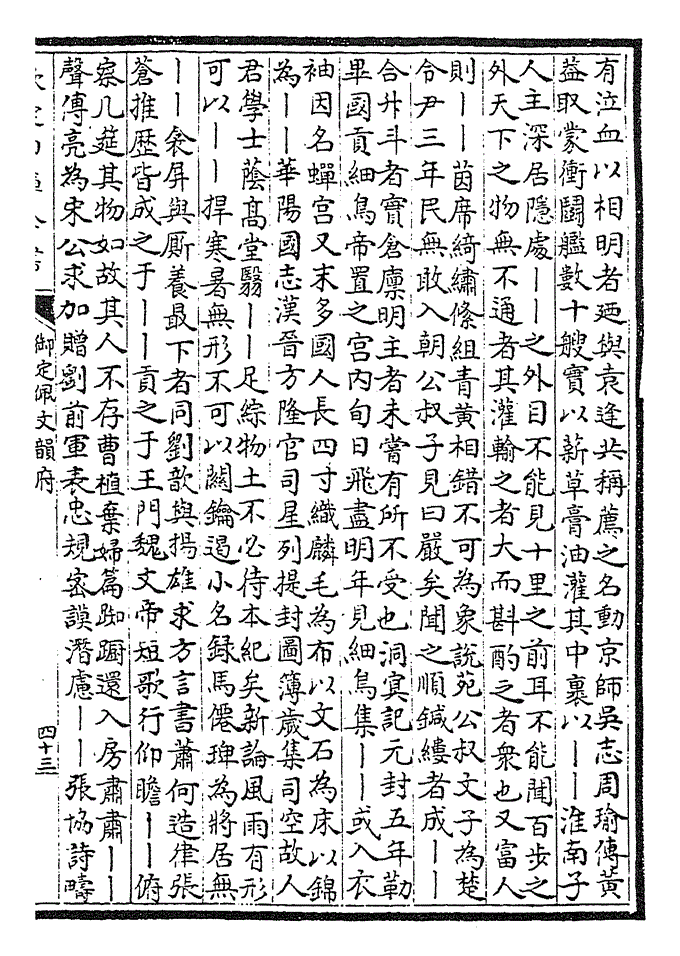 有泣血以相明者廼與袁逢共稱薦之名動京師吳志周瑜傳黄
葢取蒙衝鬭艦數十艘實以薪草膏油灌其中裹以丨丨淮南子
人主深居隱處丨丨之外目不能見十里之前耳不能聞百步之
外天下之物無不通者其灌輸之者大而斟酌之者衆也又富人
則丨丨茵席綺繡絛組青黄相錯不可為象說苑公叔文子為楚
令尹三年民無敢入朝公叔子見曰嚴矣聞之順鍼縷者成丨丨
合升斗者實倉廩明主者未嘗有所不受也洞㝠記元封五年勒
畢國貢細鳥帝置之宫内旬日飛盡明年見細鳥集丨丨或入衣
袖因名蟬宫又末多國人長四寸織麟毛為布以文石為床以錦
為丨丨華陽國志漢晉方隆官司星列提封圖簿歲集司空故人
君學士蔭髙堂翳丨丨足綜物土不必待本紀矣新論風雨有形
可以丨丨捍寒暑無形不可以關鑰遏小名録馬僊琕為將居無
丨丨衾屏與厮養最下者同劉歆與揚雄求方言書蕭何造律張
蒼推歴皆成之于丨丨貢之于王門魏文帝短歌行仰瞻丨丨俯
察几筵其物如故其人不存曹植棄婦篇踟蹰還入房肅肅丨丨
聲傅亮為宋公求加贈劉前軍表忠規宻謨潛慮丨丨張協詩疇
御定佩文韻府
四十三